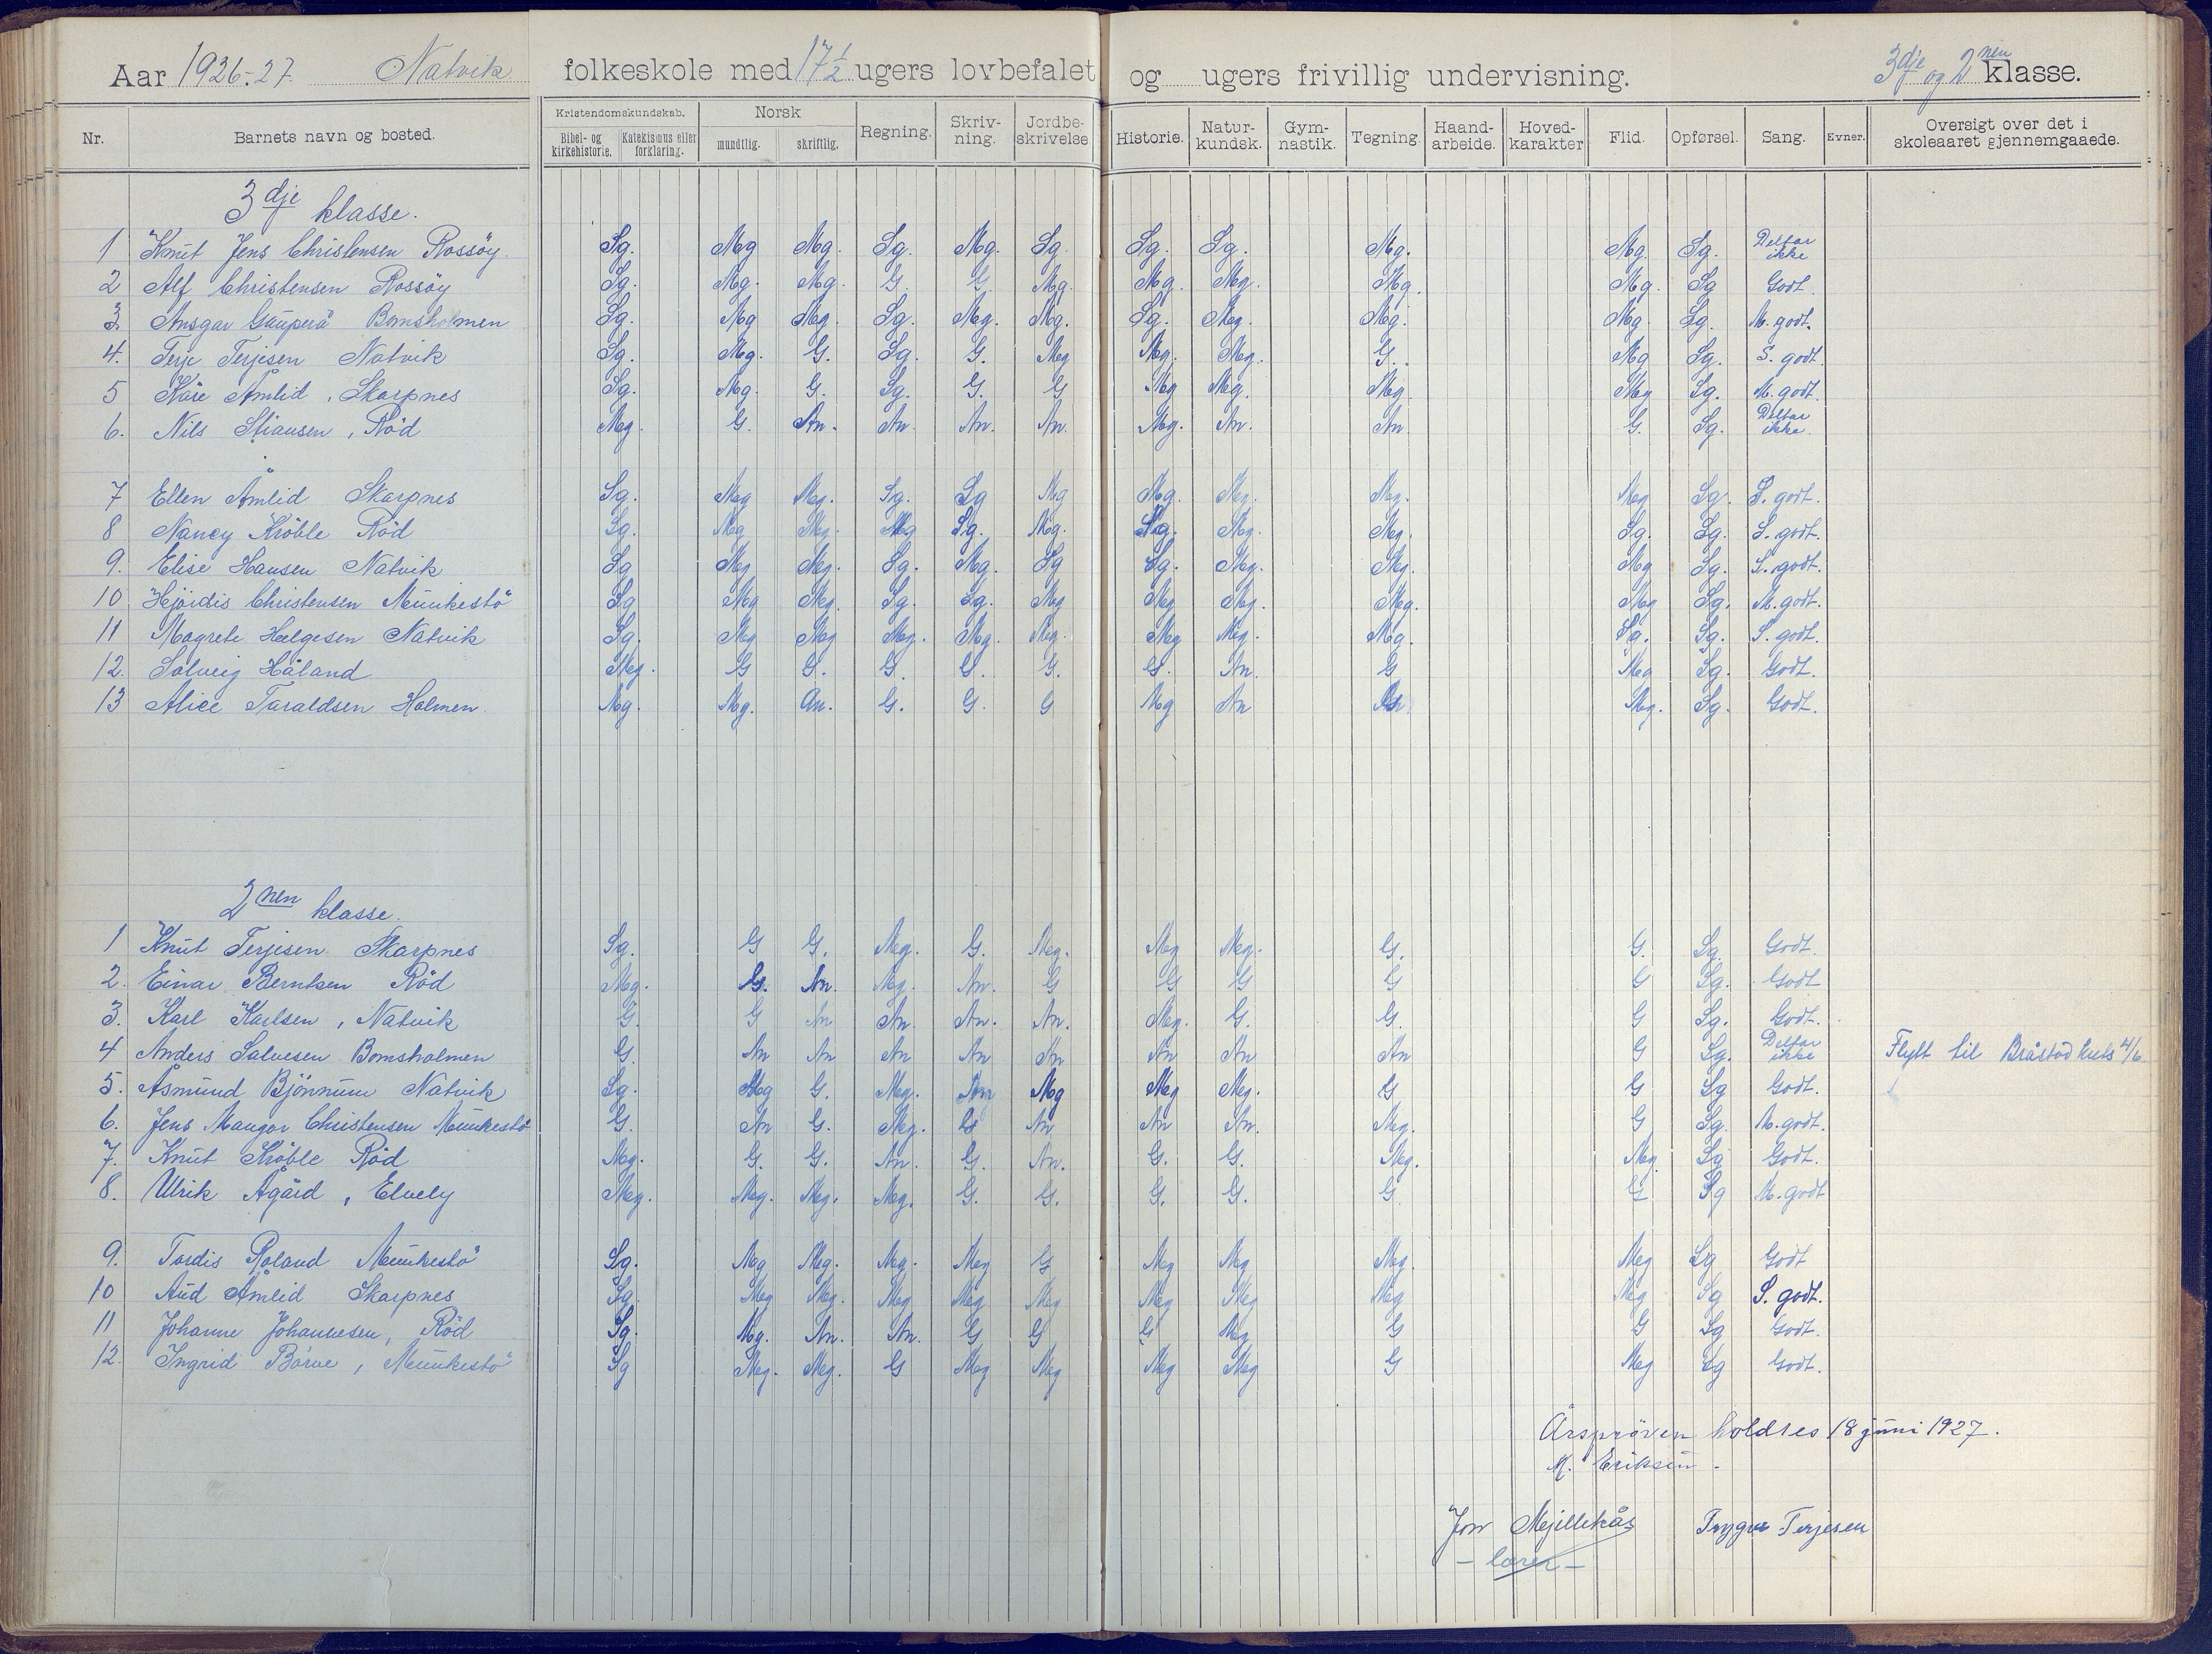 Aar 1926-27. Natvik folkeskole med 17 1/2 ugers lovbefalet og ugers frivillig undervisning. 3dje og 2nen klasse.
Nr. Barnets navn og bosted. Kristendomskundskab. Bibel- og kirkehistorie. Katekismus eller forklaring. Norsk mundtlig. skriftlig. Regning. Skrivning. Jordbeskrivelse. Historie. Naturkundsk. Gymnastik. Tegning. Haandarbeide. Hovedkarakter Flid. Opførsel. Sang. Evner. Oversigt over det i skoleaaret gjennemgaaede.
3dje klasse.
1 Knut Jens Christensen Rossöy. Sg. Mg Mg. Sg. Mg. Sg. Sg. Sg. Mg. Mg. Sg. Deltar ikke
2 Alf Christensen Rossöy Sg. Mg. Mg. G. G Mg. Mg. Mg. Mg. Mg. Sg Godt.
3. Ansgar Gauperå Bomsholmen Sg. Mg Mg. Sg. Mg. Mg. Sg. Mg. Mg. Mg. Sg. M. godt.
4. Terje Terjesen Natvik Sg. Mg. G. Sg. G. Mg Mg. Mg. G. Mg Sg. S. godt.
5 Kåre Åmlid, Skarpnes Sg. Mg. G. Sg. G. G Mg Mg. Mg. Mg Sg. M. godt.
6. Nils Stiansen, Röd Mg. G. An. An. An. An. Mg. An. An. G. Sg. Deltar ikke.
7 Ellen Åmlid Skarpnes Sg. Mg Mg. Sg. Sg Mg Mg. Mg. Mg. Mg Sg. S. godt.
8 Nancy Kröble Röd Sg. Mg Mg. Mg Sg. Mg. Sg. Mg. Mg. Sg. Sg. S. godt.
9. Elise Hansen Natvik Sg Mg Mg. Sg. Mg. Sg Sg. Mg. Mg. Mg Sg. S. godt.
10 Hjördis Christensen Munkestö Sg Mg Mg. Sg. Sg. Mg Mg Mg. Mg. Mg Sg. M. godt.
11 Magrete Helgesen Natvik Sg. Mg Mg Mg. Mg. Mg. Mg Mg. Mg. Sg. Sg. S. godt.
12. Solveig Håland Mg. G G. G. G. G. G. An. G Mg Sg. Godt.
13 Alice Taraldsen Holmen. Mg. Mg. An. G. G. G Mg An An. Mg. Sg. Godt.
2nen klasse.
1 Knut Terjesen Skarpnes Sg. G G. Mg. G. Mg. Mg Mg. G. G. Sg. Godt.
2. Einar Berntsen Röd Mg. G. An. Mg. An. G G G G G Sg. Godt
3. Karl Karlsen, Natvik G. G An An. An. An. Mg. G. G. G Sg. Godt.
4 Anders Salvesen Bomsholmen G. An An An An An An An An G Sg. Deltar ikke Flytt til Bråstad kreds 4/6
5. Åsmund Björnnum Natvik Sg. Mg G. Mg. Ann Mg Mg Mg. G G Sg Godt.
6. Jens Mangor Christensen Munkestö G. An G. Mg. G An An An. Mg. G Sg. M. godt.
7. Knut Kröble Röd Mg. G. G. An. G. An. G. G. Mg. Mg. Sg Godt.
8. Ulrik Ågård, Elvely Mg. Mg. Mg. Mg. G. G. G. G. G G Sg M. godt
9. Tordis Roland Munkestö Sg. Mg Mg. Mg. Mg G Mg Mg Mg. Mg Sg Godt
10 Aud Åmlid Skarpnes Sg. Mg Mg. Mg Mg Mg Mg Mg Mg Mg Sg S. godt.
11 Johanne Johannesen, Röd Sg. Mg. An. An. G G G Mg G G Sg Godt.
12. Ingrid Börve, Munkestö Sg Mg. Mg. G Mg Mg Mg Mg G Mg Sg Godt.
Årspröven holdtes 18 juni 1927.
M. Eriksen.
Jon Mjillekås Trygve Terjesen
- lærer -